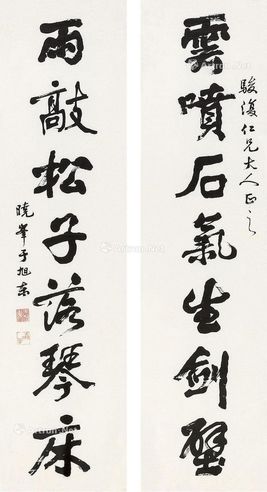 駿復仁兄大人正之
雲噴石氣生劍壁
雨敲松子落琴床
曉峯于旭東